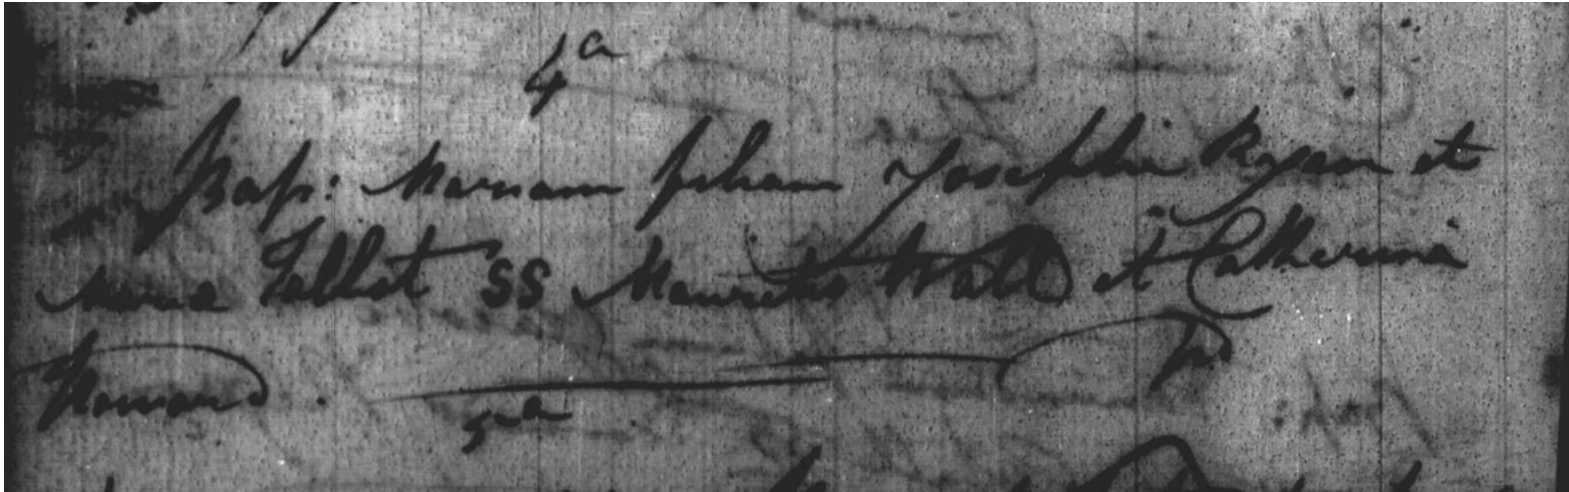 4a
Bap: Mariam filiam Josephi Ryan et
Maria Talbot SS Mauritio Wall et Catherina
5a